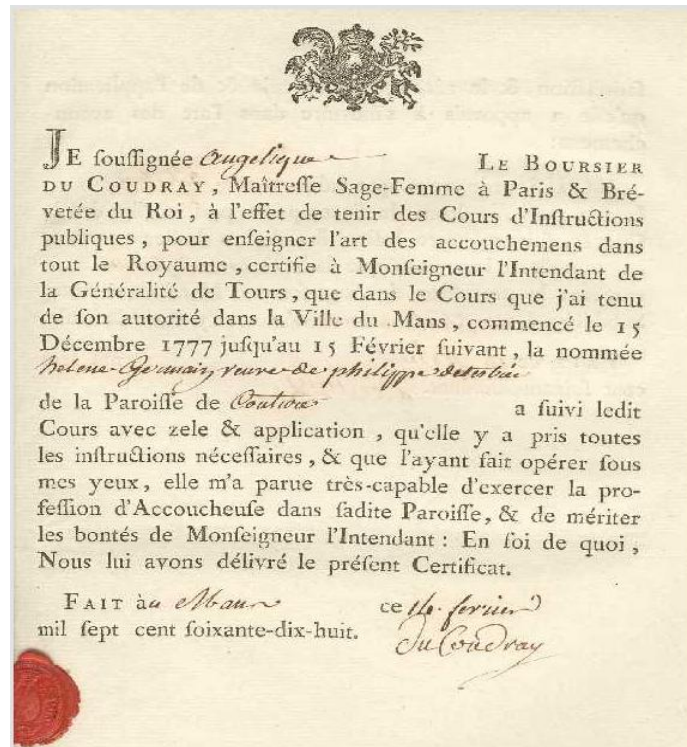 JE souſſignée Angelique LE BOURSIER
DU COUDRAY, Maîtreſſe Sage-Femme à Paris & Bré-
vetée du Roi, à l'effet de tenir des Cours d'Inſtructions
publiques, pour enſeigner l'art des accouchemens dans
tout le Royaume, certifie à Monſeigneur l'Intendant de
la Généralité de Tours, que dans le Cours que j'ai tenu
de ſon autorité dans la Ville du Mans, commencé le 15
Décembre 1777 juſqu'au 15 Février ſuivant, la nommée
helene Germain veuve de philippe
de la Paroiſſe de a ſuivi ledit
Cours avec zele & application, qu'elle y a pris toutes
les inſtructions néceſſaires, & que l'ayant fait opérer ſous
mes yeux, elle m'a parue très-capable d'exercer la pro-
feſſion d'Accoucheuſe dans ſadite Paroiſſe, & de mériter
les bontés de Monſeigneur l'Intendant : En foi de quoi,
Nous lui avons délivré le préſent Certificat.
FAIT àu Mans ce 14 fevrier
mil ſept cent ſoixante-dix-huit. du Coudray